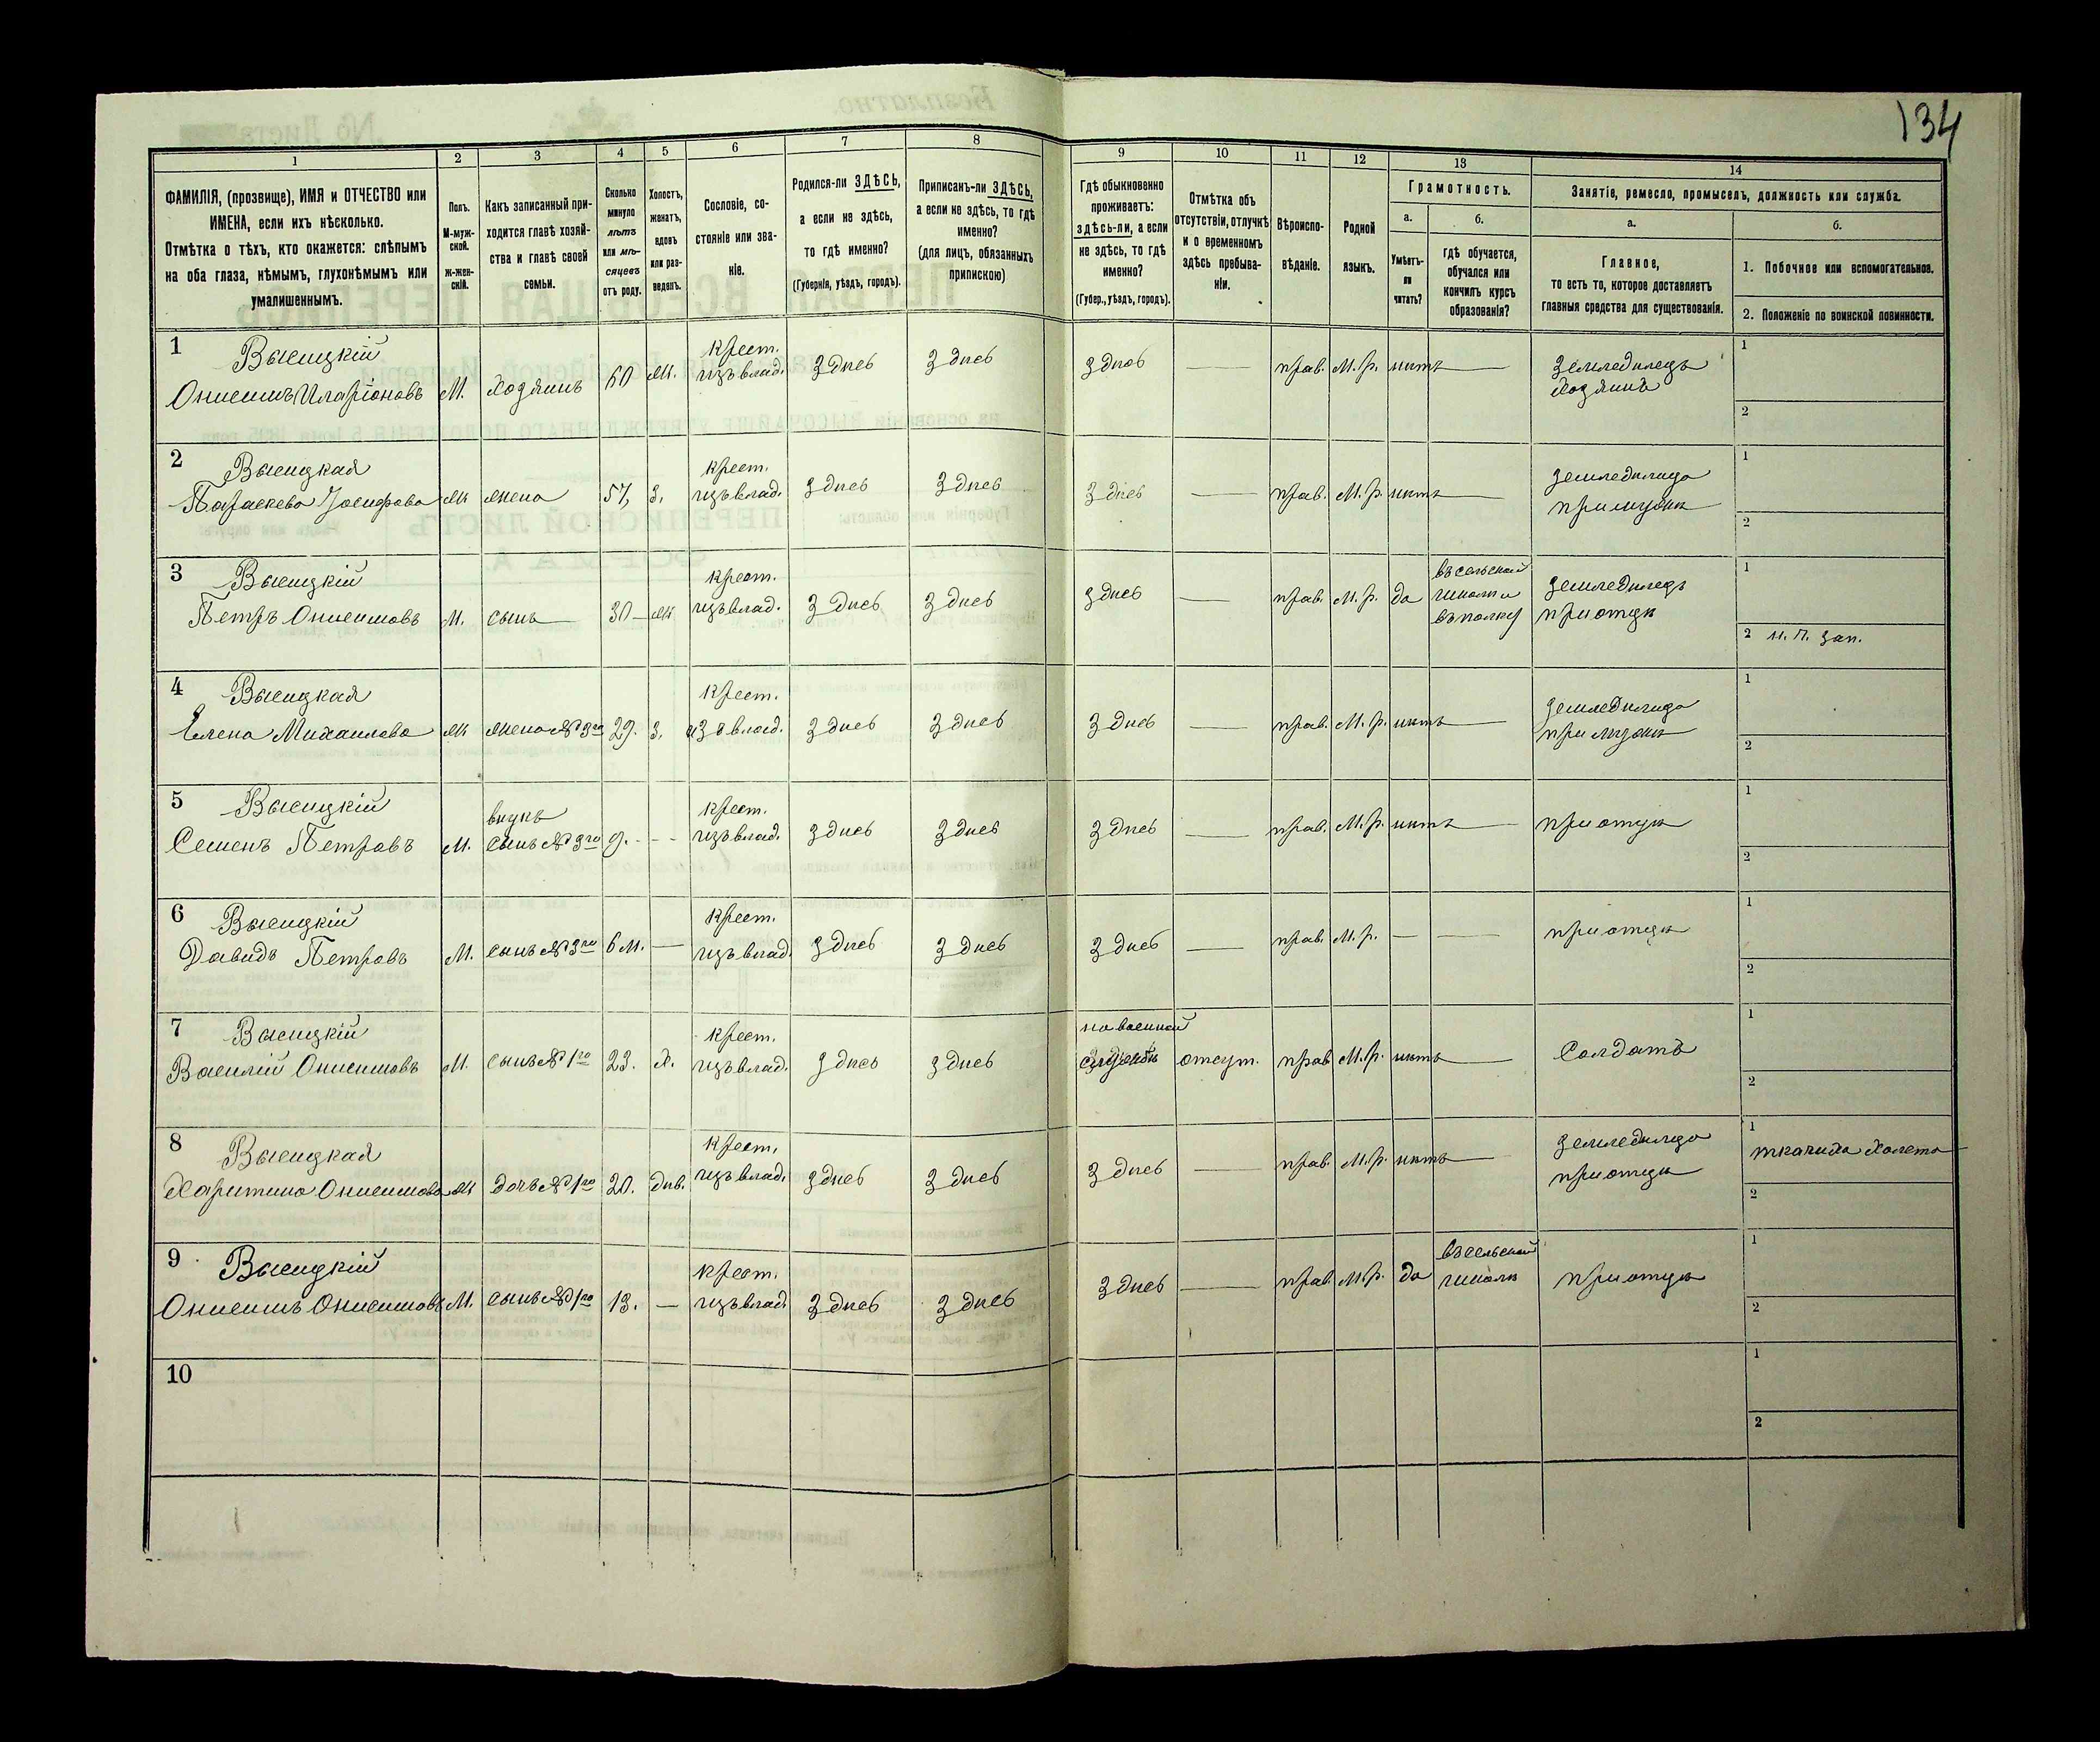 134
1
2
3
4
5
6
7
8
9
10
11
12
13
14
ФАМИЛІЯ, (прозвище), ИМЯ и ОТЧЕСТВО или
ИМЕНА, если ихъ нѣсколько.
Отмѣтка о тѣхъ, кто окажется: слѣпымъ
на оба глаза, нѣмымъ, глухонѣмымъ или
умалишеннымъ.
Полъ.
М-муж-
ской.
ж-жен-
скій.
Какъ записанный при-
ходится главѣ хозяй-
ства и главѣ своей
семьи.
Сколько
минуло
лѣтъ
или мѣ-
сяцевъ
отъ роду.
Холостъ,
женатъ,
вдовъ
или раз-
веденъ.
Сословіе, со-
стояніе или зва-
ніе.
Родился-ли ЗДѢСЬ,
а если не здѣсь,
то гдѣ именно?
(Губернія, уѣздъ, городъ).
Приписанъ-ли ЗДѢСЬ,
а если не здѣсь, то гдѣ
именно?
(для лицъ, обязанныхъ
припискою)
Гдѣ обыкновенно
проживаетъ:
здѣсь-ли, а если
не здѣсь, то гдѣ
именно?
(Губер., уѣздъ, городъ).
Отмѣтка объ
отсутствіи, отлучкѣ
и о временномъ
здѣсь пребыва-
ніи.
Вѣроиспо-
вѣданіе.
Родной
языкъ.
Грамотность.
а.
б.
Умѣетъ-
ли
читать?
гдѣ обучается,
обучался или
кончилъ курсъ
образованія?
Занятіе, ремесло, промыселъ, должность или служба.
а.
б.
Главное,
то есть то, которое доставляетъ
главныя средства для существованія.
1. Побочное или вспомогательное.
2. Положеніе по воинской повинности.
1 Высицкій крест. 1
Онисимъ Иларіоновъ М. Хозяинъ 60 Ж. изъ влад. Здѣсь Здѣсь Здѣсь — прав. М. р. нѣтъ — Земледѣлецъ
Хозяинъ
2
2 Высицкая крест. 1
Параскева Іосифова Ж жена 57, З. изъ влад. Здѣсь Здѣсь Здѣсь — прав. М. р. нѣтъ — земледѣлица
при мужѣ
2
3 Высицкій крест. въ сельской 1
Петръ Онисимовъ М. сынъ 30 Ж изъ влад. Здѣсь Здѣсь Здѣсь — прав. М. р. да школѣ и земледѣлецъ
въ полку при отцѣ
2 н. п. зап.
4 Высицкая крест. 1
Елена Михаилова Ж жена № 3го 29. З. изъ влад. Здѣсь Здѣсь Здѣсь — прав. М. р. нѣтъ — земледѣлица
при мужѣ
2
5 Высицкій внукъ крест. 1
Семенъ Петровъ М. сынъ № 3го 9. - - - изъ влад. Здѣсь Здѣсь Здѣсь — прав. М. р. нѣтъ — при отцѣ
2
6 Высицкій крест. 1
Давидъ Петровъ М. сынъ № 3го 6 м. — изъ влад. Здѣсь Здѣсь Здѣсь — прав. М. р. — — при отцѣ
2
7 Высицкій крест. на военной 1
Василій Онисимовъ М. сынъ № 1го 23. Х. изъ влад. Здѣсь Здѣсь службѣ отсут. прав М. р. нѣтъ — Солдатъ
2
8 Высицкая крест. земледѣлица 1
Харитина Онисимова Ж дочь № 1го 20. дѣв. изъ влад. Здѣсь Здѣсь Здѣсь — прав. М. р. нѣтъ — при отцѣ ткачиха
2
9 Высицкій крест. въ сельской 1
Онисимъ Онисимовъ М. сынъ № 1го 13. — изъ влад Здѣсь Здѣсь Здѣсь — прав. М. р. да школѣ при отцѣ
2
10 1
2